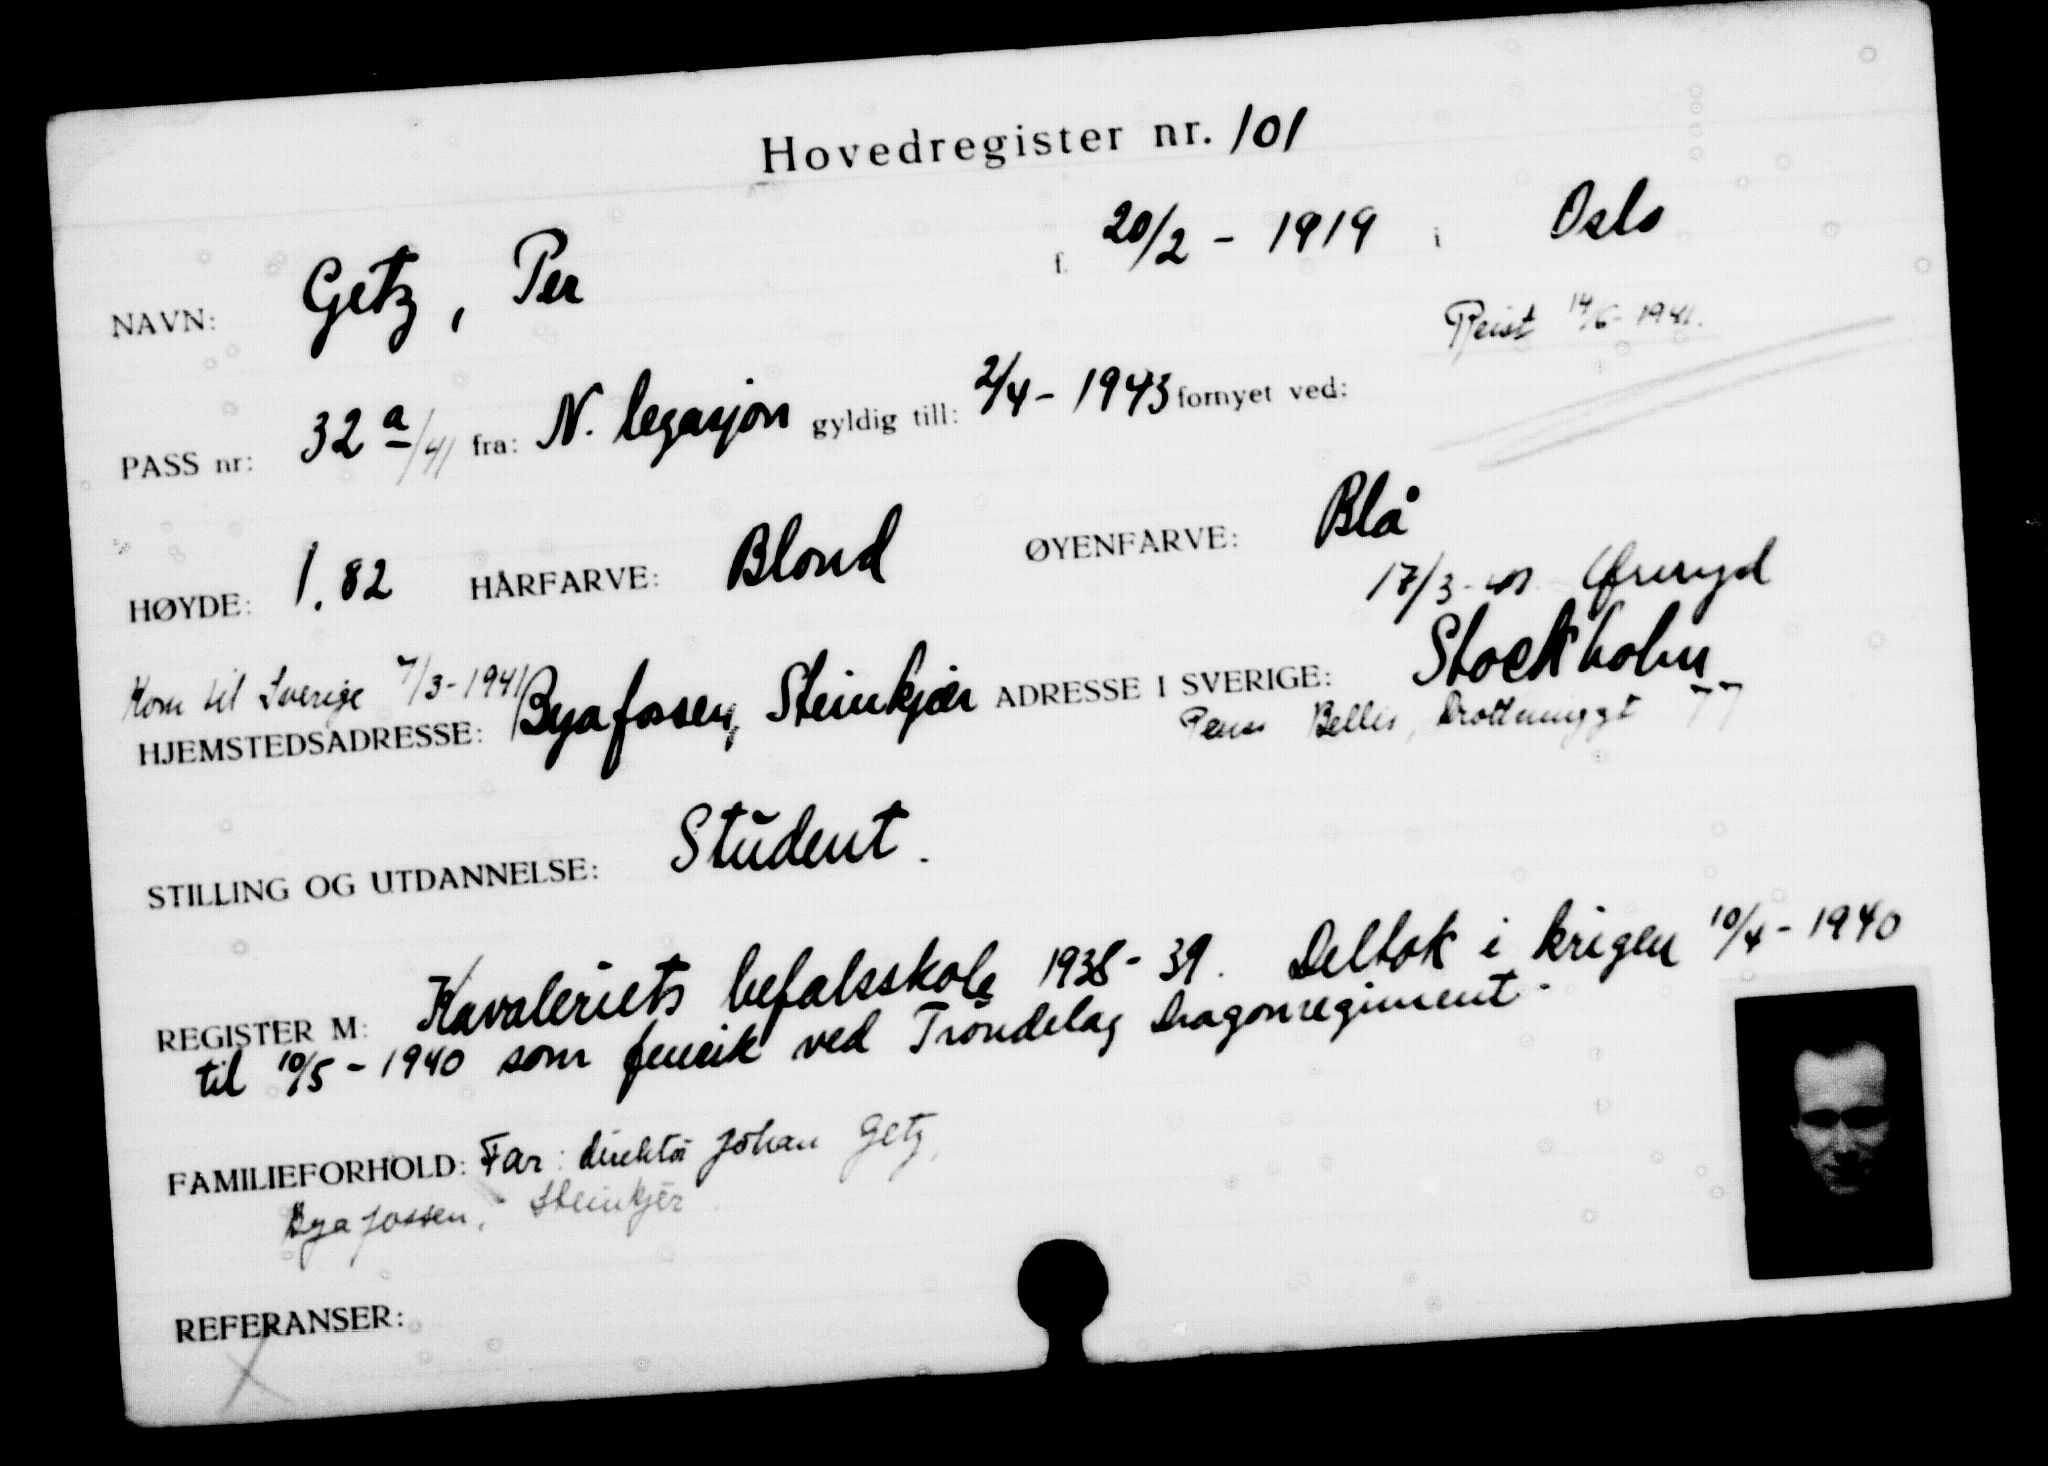 Hovedregister nr. 101
NAVN: Getz, Per f. 20/2 - 1919 i Oslo
Reist 14/6 - 1941.
PASS nr: 32 a/41 fra: N. legasjon gyldig till: 2/4 - 1943 fornyet ved:
HØYDE: 1.82 HÅRFARVE: Blond ØYENFARVE: Blå
17/3-41 Øreryd
Kom til Sverige 7/3-1941
HJEMSTEDSADRESSE: Byafossen, Steinkjær ADRESSE I SVERIGE: Stockholm
Pens Bellis, Drottninggt 77
STILLING OG UTDANNELSE: Student.
REGISTER M: Kavaleriets befalsskole 1938-39. Deltok i krigen 10/4-1940
til 10/5-1940 som fenrik ved Trøndelag Dragonregiment.
FAMILIEFORHOLD: Far: direktør Johan Getz,
Byafossen, Steinkjer
REFERANSER: